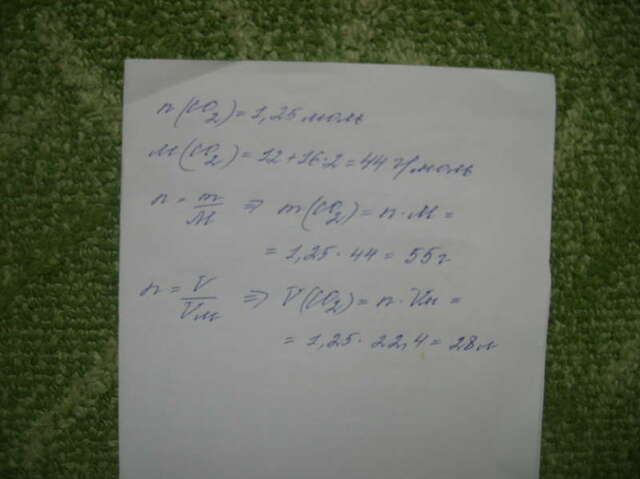 n(CO2) = 1,25 моль
M(CO2) = 12 + 16·2 = 44 г/моль
n = m/M ⇒ m(CO2) = n · M =
= 1,25 · 44 = 55 г
n = V/Vм ⇒ V(CO2) = n · Vм =
= 1,25 · 22,4 = 28 л